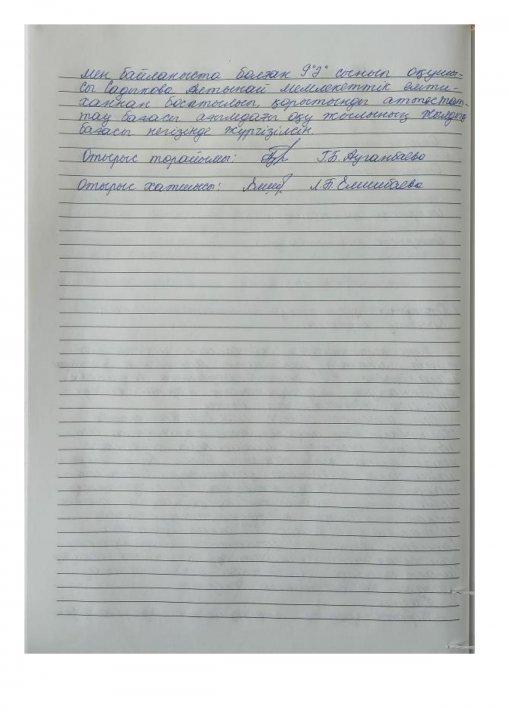 мен байланыста болған 9"Ә" сынып оқушы-
сы Садыкова Алтынай мемлекеттік емти-
ханнан босатылып, қорытынды аттестат-
тау бағасы ағымдағы оқу жылының жылдық
бағасы негізінде жүргізілсін.
Отырыс төрайымы: Г.Б.Ауганбаева
Отырыс хатшысы: Л.Б.Емшибаева